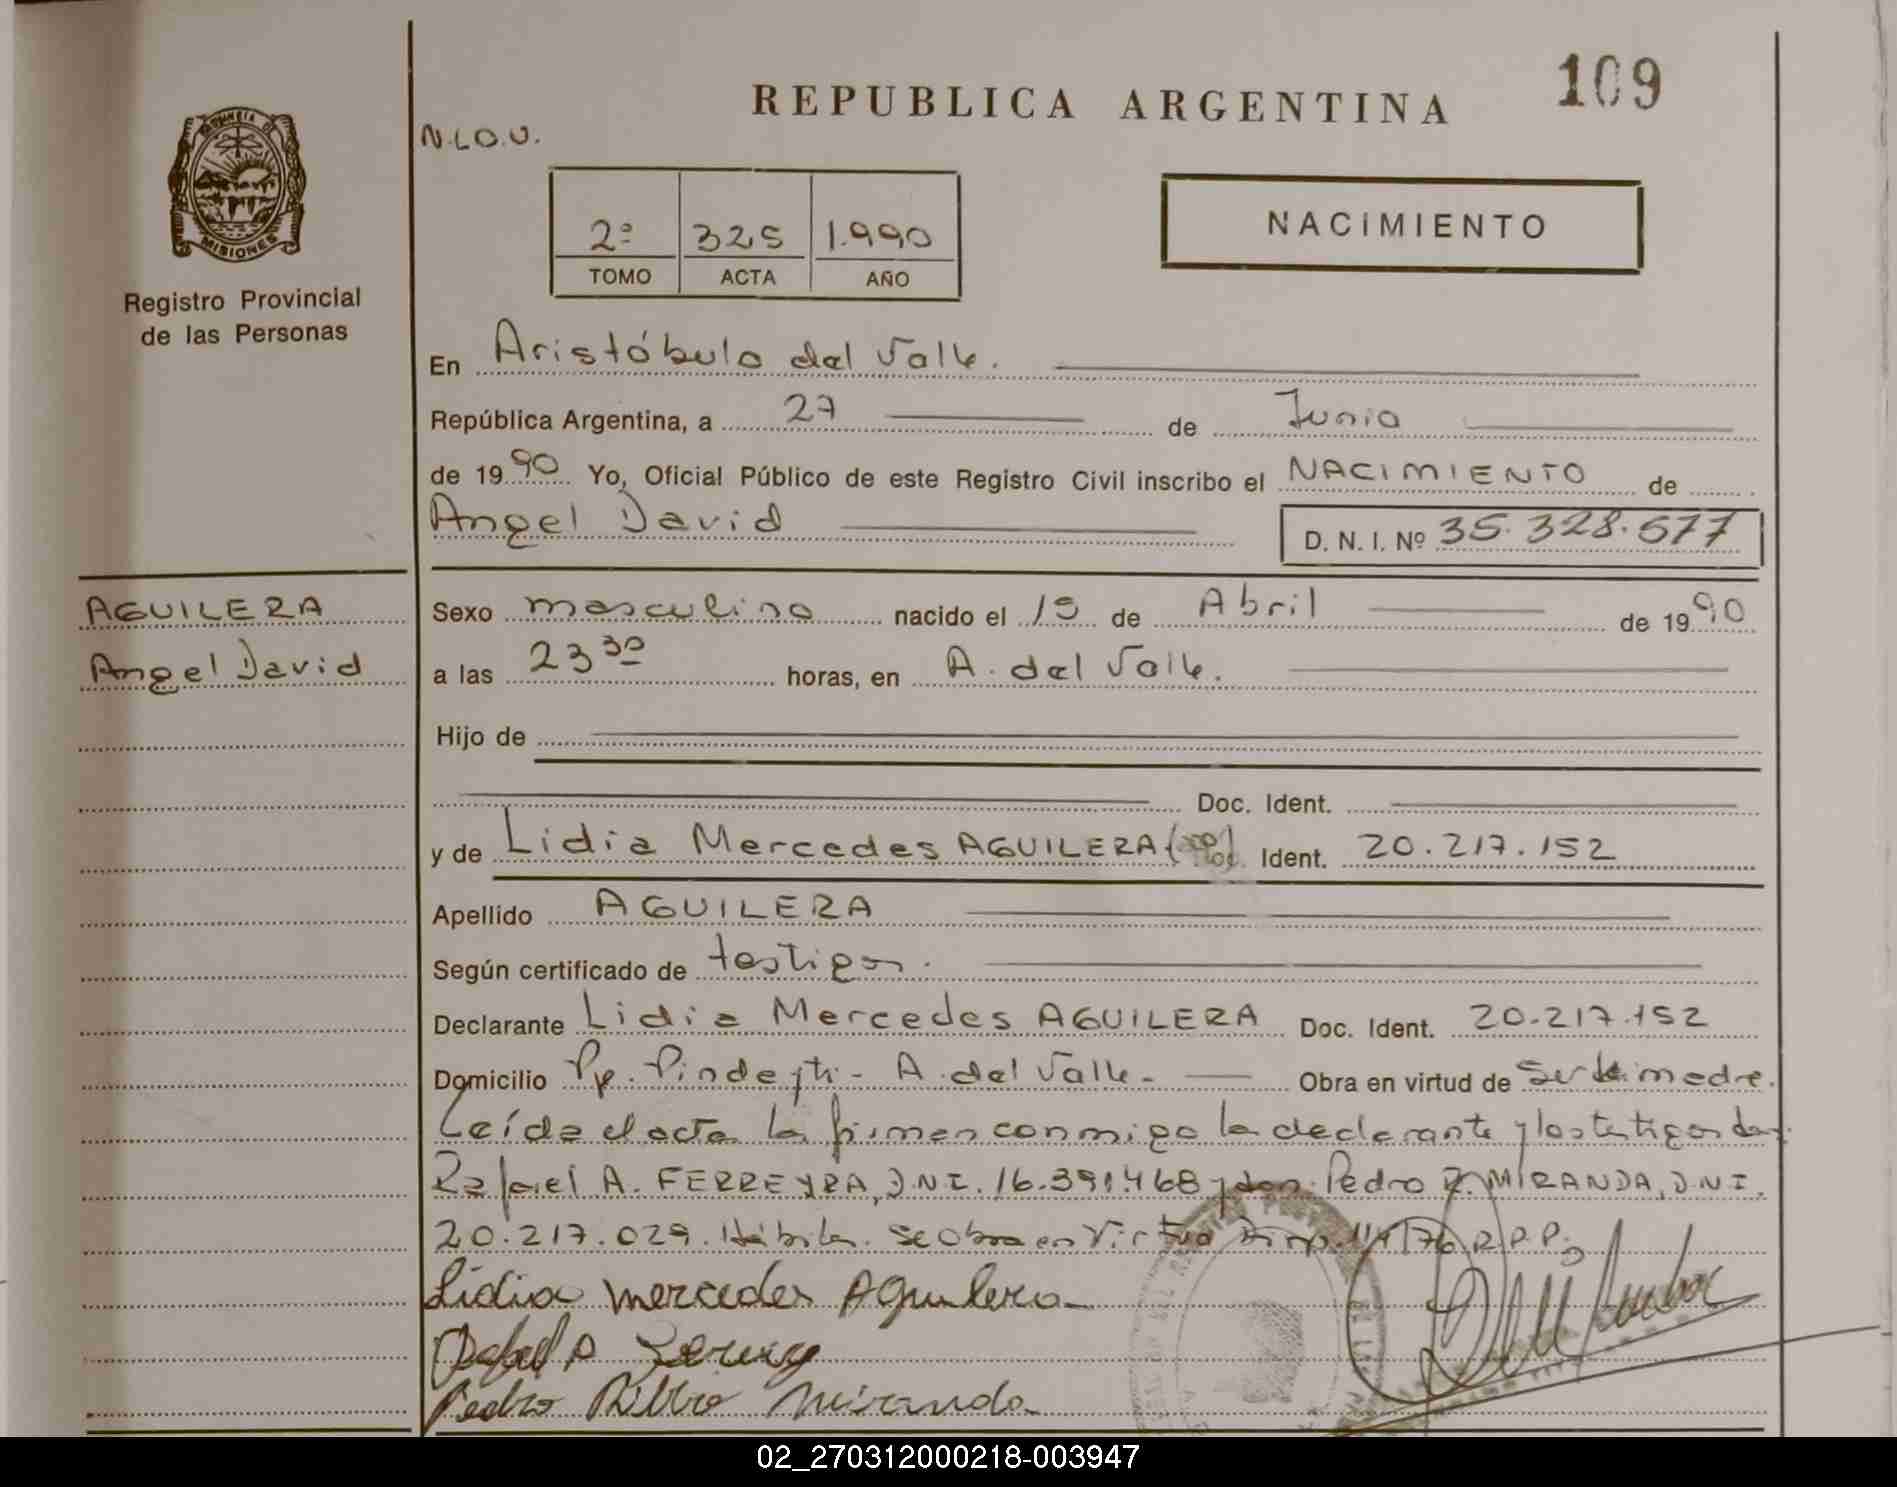 REPUBLICA ARGENTINA
109
N.LO.U.
2º 325 1.990
TOMO ACTA AÑO
NACIMIENTO
PROVINCIA DE
MISIONES
Registro Provincial
de las Personas
En Aristóbulo del Valle.
República Argentina, a 27 de Junio
de 1990 Yo, Oficial Público de este Registro Civil inscribo el NACIMIENTO de
Angel David D. N. I. Nº 35.328.577
AGUILERA
Angel David
Sexo masculino nacido el 15 de Abril de 1990
a las 23 30 horas, en A. del Valle.
Hijo de
Doc. Ident.
y de Lidia Mercedes AGUILERA Ident. 20.217.152
Apellido AGUILERA
Según certificado de testigos.
Declarante Lidia Mercedes AGUILERA Doc. Ident. 20.217.152
Domicilio Pje. Pindeyti - A. del Valle - Obra en virtud de ser la madre.
Leída el acta la firman conmigo la declarante y los testigos don
Rafael A. FERREYRA, D.N.I. 16.391.468 y don Pedro R. MIRANDA, D.N.I.
20.217.029. Hábiles. Se obra en Virtud Disp. 114/76 R.P.P.
Lidia Mercedes Aguilera
Rafael A Ferreyra
Pedro Miranda
02_270312000218-003947